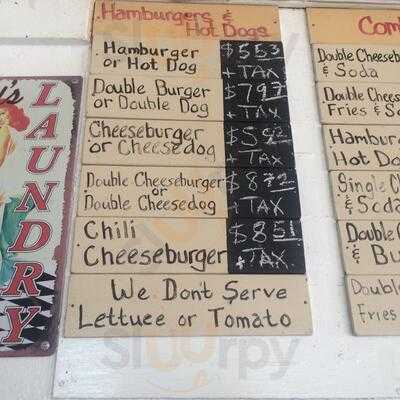 Hamburgers &
Hot Dogs
Hamburger
or Hot Dog
$5.53
+ TAX
Double Burger
or Double Dog
$7.97
+ TAX
Cheeseburger
or Cheesedog
$5.92
+ TAX
Double Cheeseburger
or
Double Cheesedog
$8.72
+ TAX
Chili
Cheeseburger
$8.51
+ TAX
We Don't Serve
Lettuce or Tomato
Com
Double Cheeseb
& Soda
Double Chees
Fries & So
Hambur
Hot Do
Single C
& Soda
Double
& Bu
Double
Fries
LAUNDRY
Sluurpy